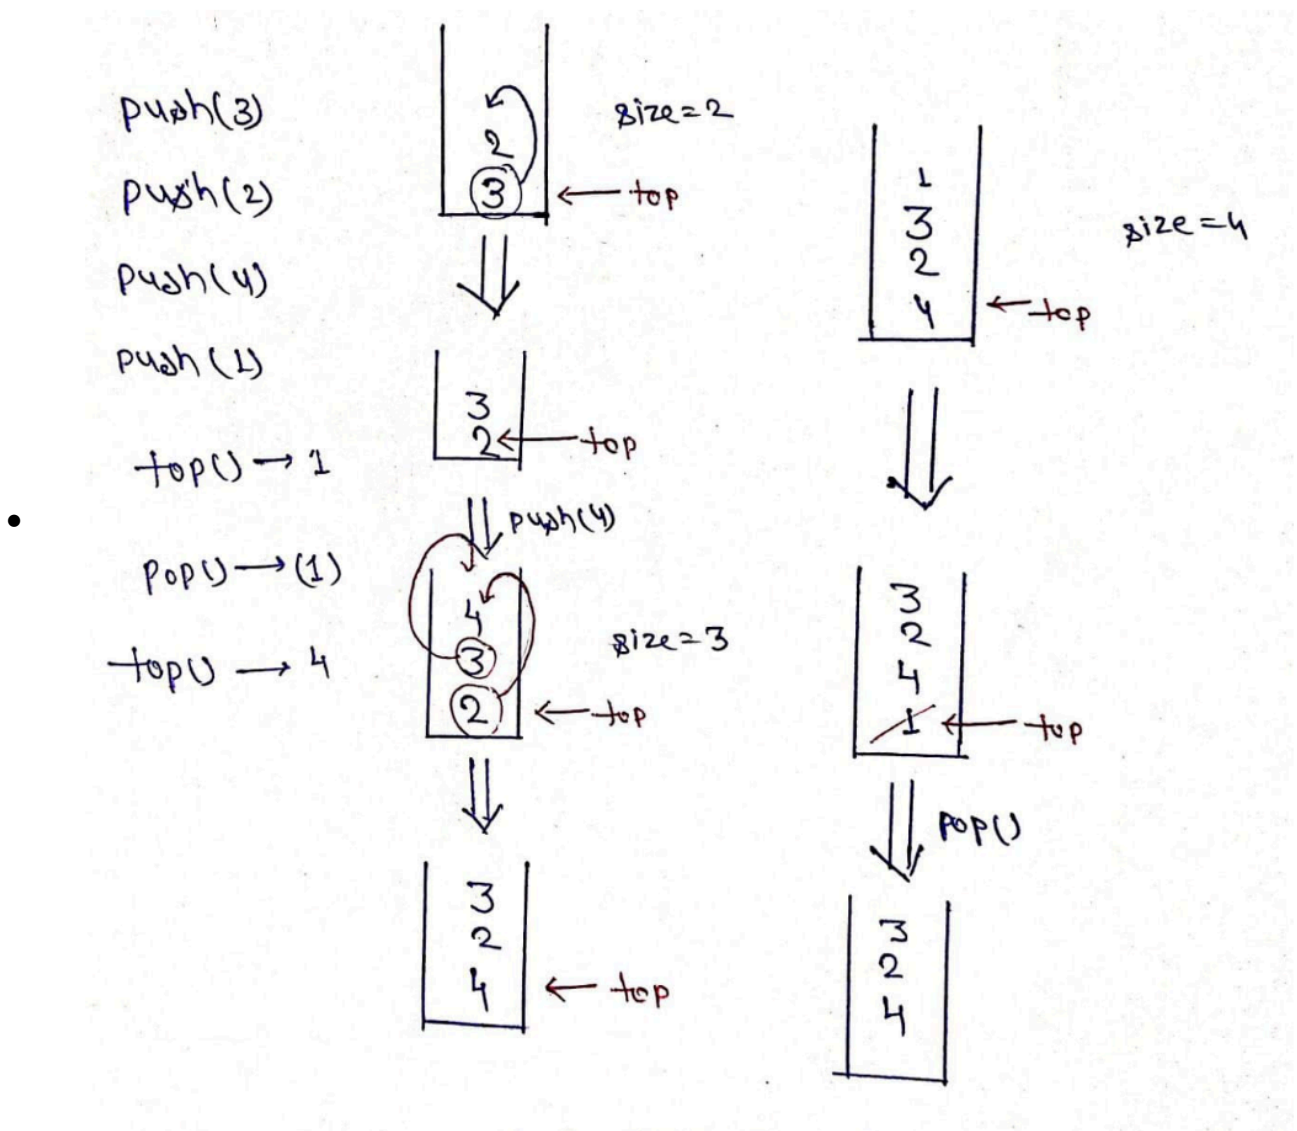 push(3)
push(2)
push(4)
push(1)
top() → 1
pop() → (1)
top() → 4
2
3
size=2
← top
3
2
← top
push(4)
4
3
2
size=3
← top
3
2
4
← top
1
3
2
4
size=4
← top
3
2
4
1
← top
pop()
3
2
4